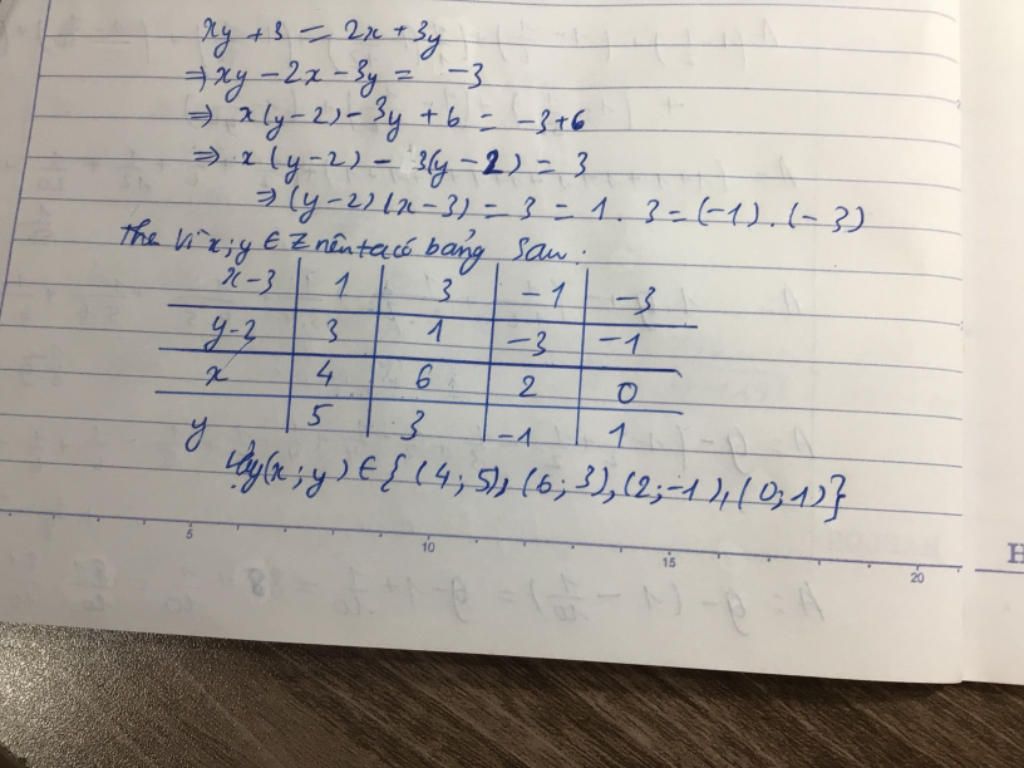 xy + 3 = 2x + 3y
⇒ xy - 2x - 3y = -3
⇒ x(y-2) - 3y + 6 = -3+6
⇒ x(y-2) - 3(y-2) = 3
⇒ (y-2)(x-3) = 3 = 1.3 = (-1).(-3)
Vì x;y ∈ Z nên ta có bảng sau:
x-3 1 3 -1 -3
y-2 3 1 -3 -1
x 4 6 2 0
y 5 3 -1 1
Vậy (x;y) ∈ {(4;5),(6;3),(2;-1),(0;1)}
5 10 15 20
H